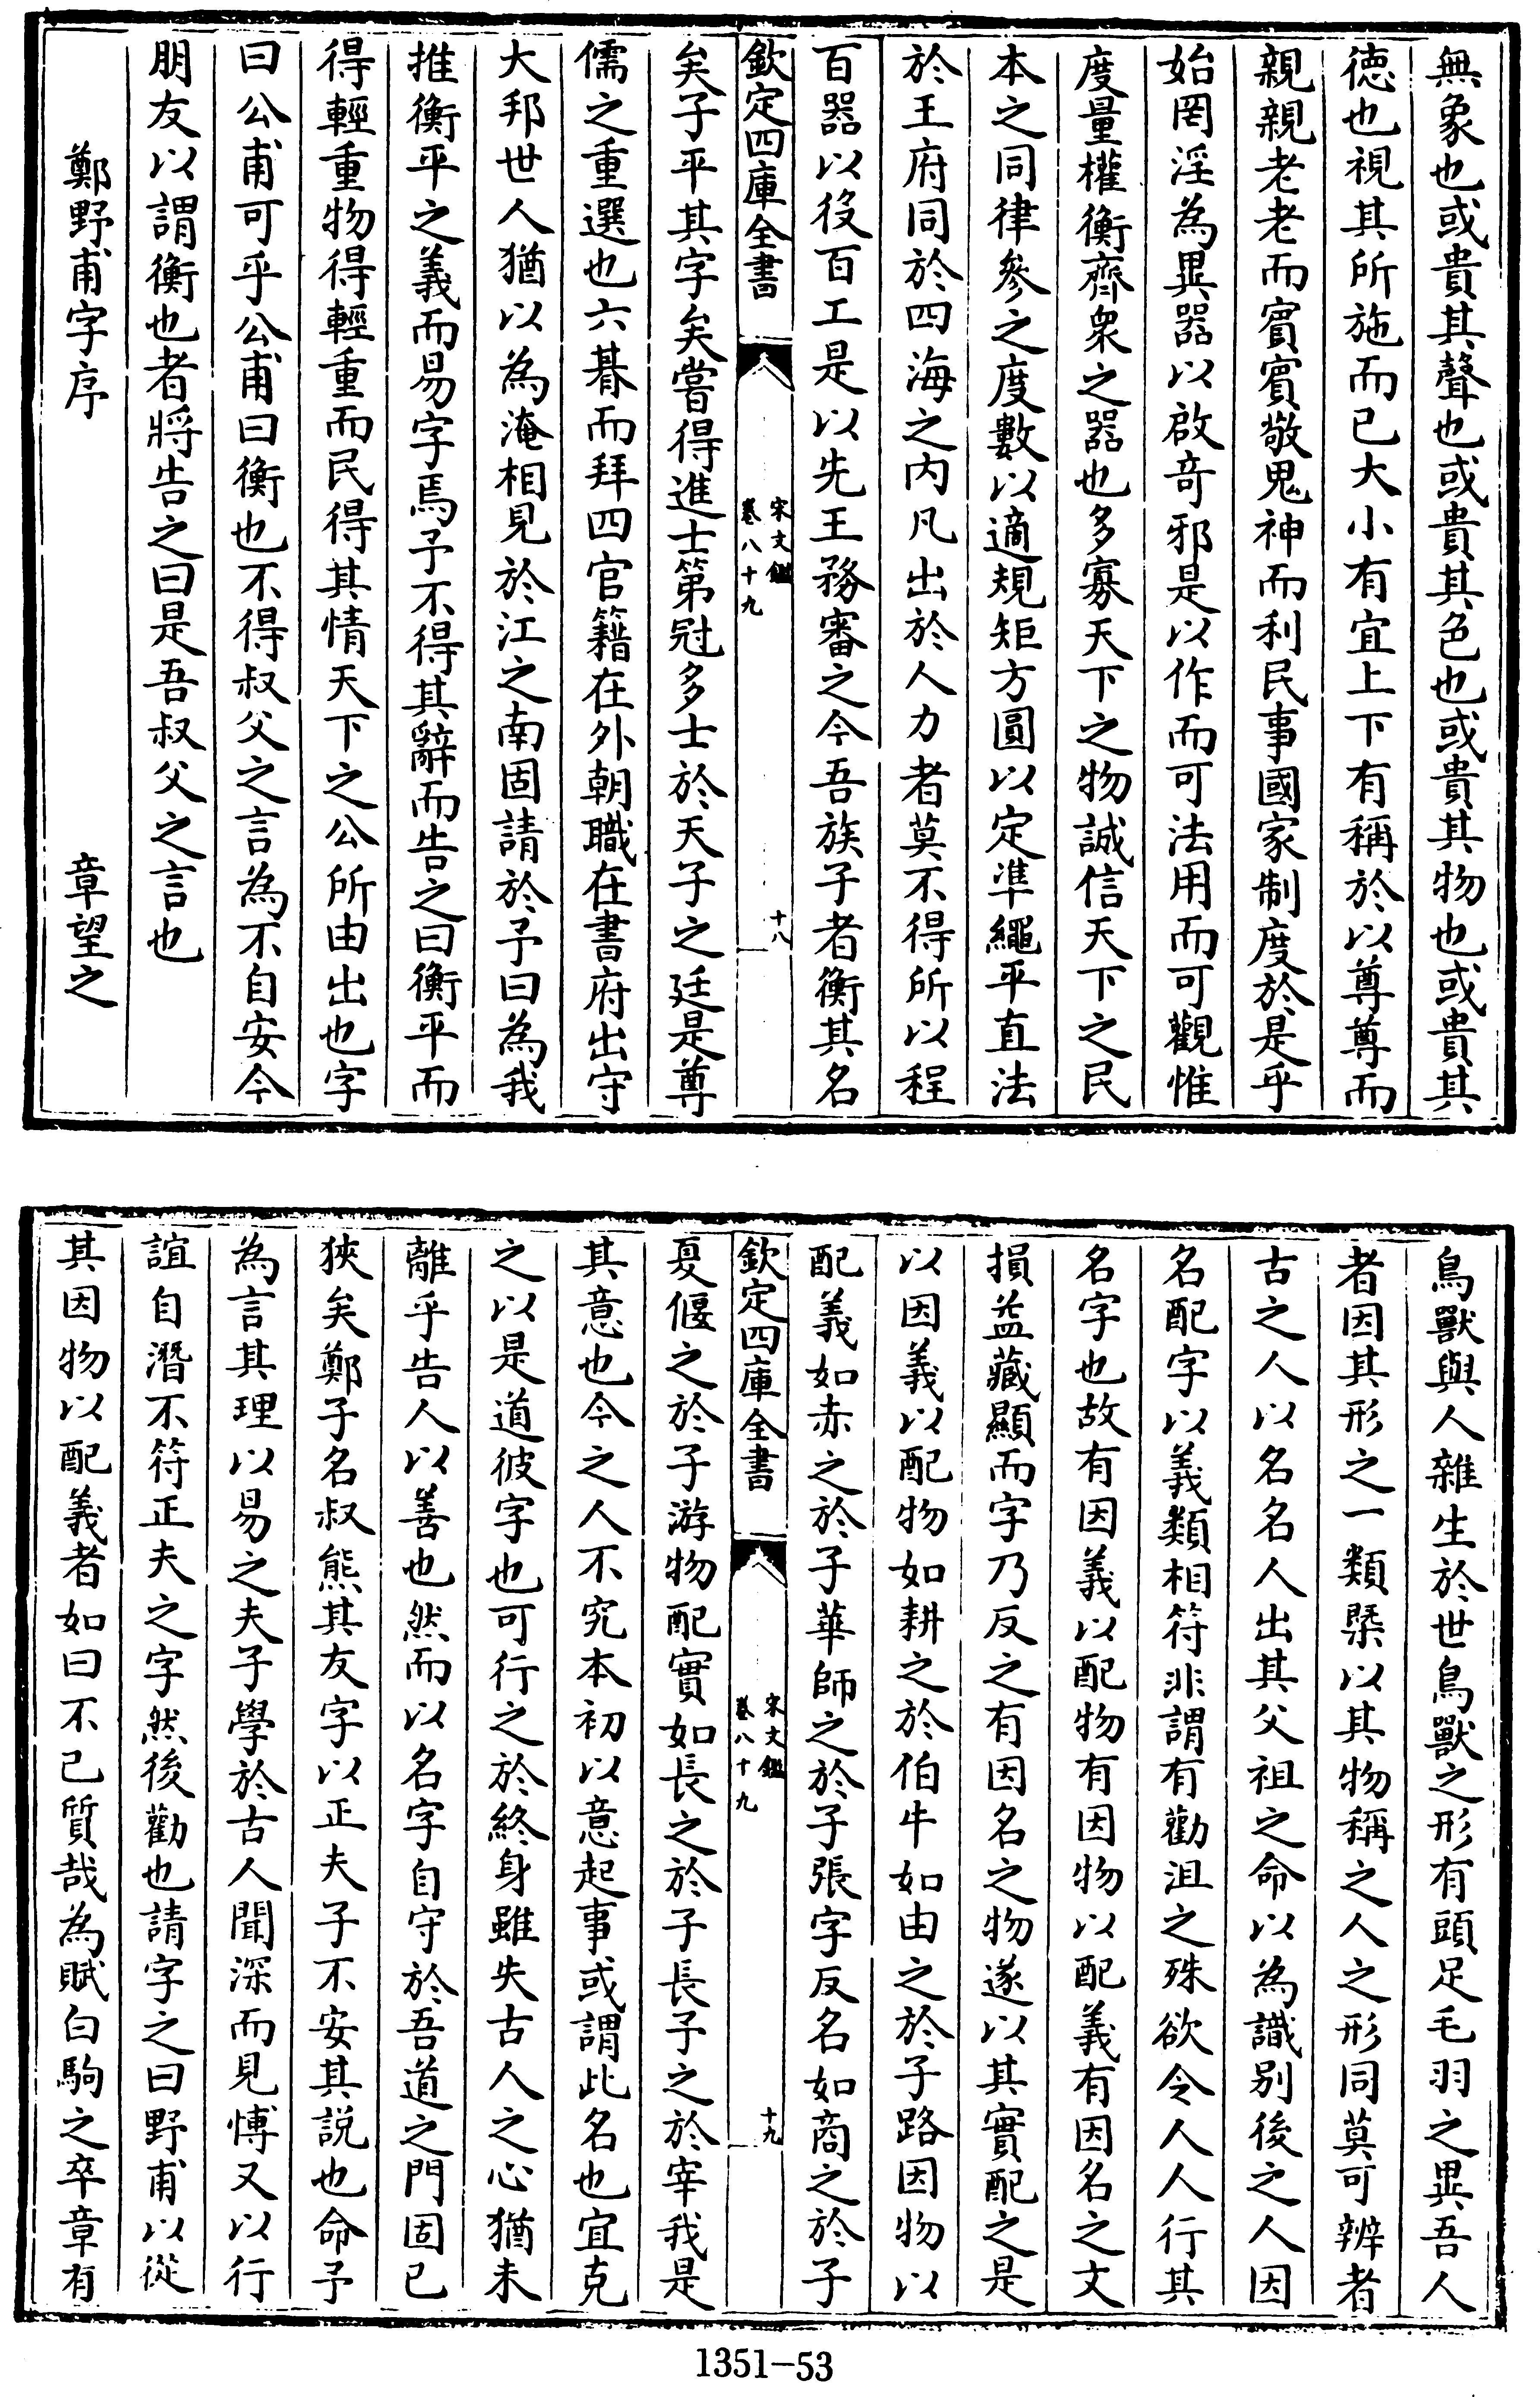 無象也或貴其聲也或貴其色也或貴其物也或貴其
徳也視其所施而已大小有宜上下有稱於以尊尊而
親親老老而賓賓敬鬼神而利民事國家制度於是乎
始罔淫為異器以啟奇邪是以作而可法用而可觀惟
度量權衡齊衆之器也多寡天下之物誠信天下之民
本之同律參之度數以適規矩方圓以定準繩平直法
於王府同於四海之内凡出於人力者莫不得所以程
百器以役百工是以先王務審之今吾族子者衡其名
欽定四庫全書
宋文鑑
卷八十九
十八
矣子平其字矣嘗得進士第冠多士於天子之廷是尊
儒之重選也六朞而拜四官籍在外朝職在書府出守
大邦世人猶以為淹相見於江之南固請於予曰為我
推衡平之義而易字焉予不得其辭而告之曰衡平而
得輕重物得輕重而民得其情天下之公所由出也字
曰公甫可乎公甫曰衡也不得叔父之言為不自安今
朋友以謂衡也者將告之曰是吾叔父之言也
鄭野甫字序
章望之
鳥獸與人雜生於世鳥獸之形有頭足毛羽之異吾人
者因其形之一類槩以其物稱之人之形同莫可辨者
古之人以名名人出其父祖之命以為識别後之人因
名配字以義類相符非謂有勸沮之殊欲令人人行其
名字也故有因義以配物有因物以配義有因名之文
損益藏顯而字乃反之有因名之物遂以其實配之是
以因義以配物如耕之於伯牛如由之於子路因物以
配義如赤之於子華師之於子張字反名如商之於子
欽定四庫全書
宋文鑑
卷八十九
十九
夏偃之於子游物配實如長之於子長子之於宰我是
其意也今之人不究本初以意起事或謂此名也宜克
之以是道彼字也可行之於終身雖失古人之心猶未
離乎告人以善也然而以名字自守於吾道之門固已
狹矣鄭子名叔熊其友字以正夫子不安其説也命予
為言其理以易之夫子學於古人聞深而見愽又以行
誼自潛不符正夫之字然後勸也請字之曰野甫以從
其因物以配義者如曰不已質哉為賦白駒之卒章有
1351-53